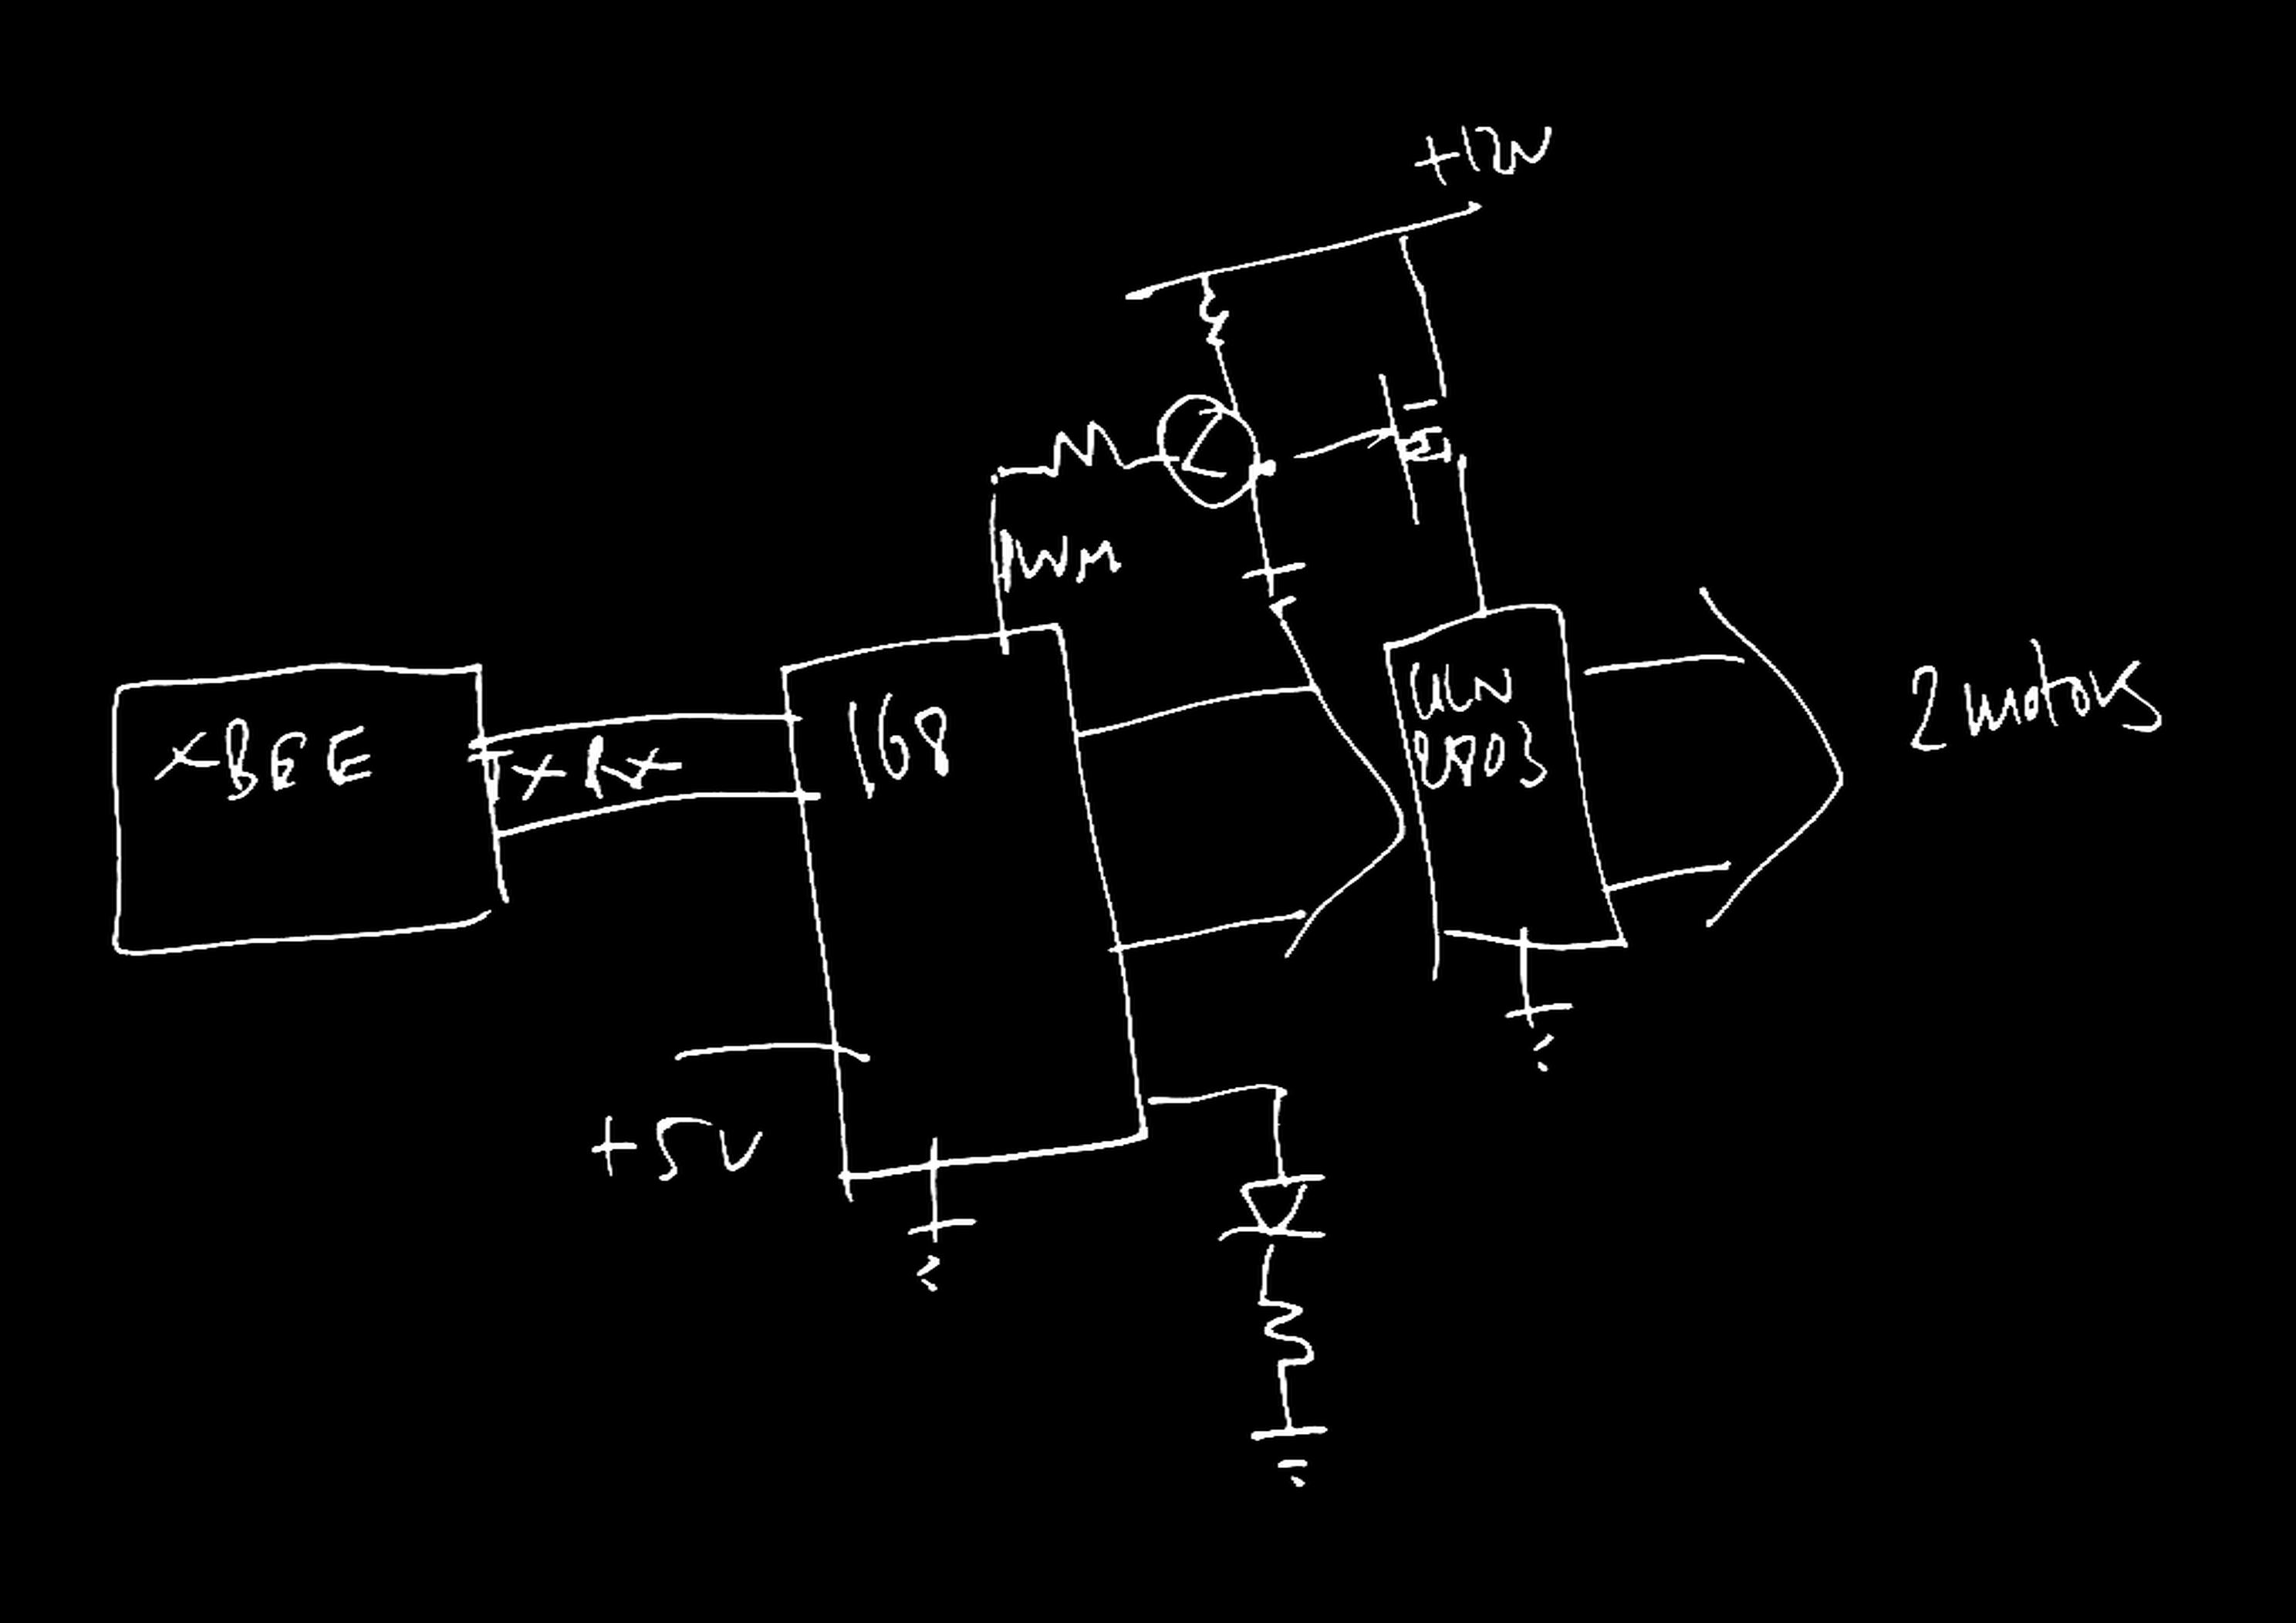 +12V
PWM
XBEE
Tx Rx
168
ULN
2803
2 motors
+5V